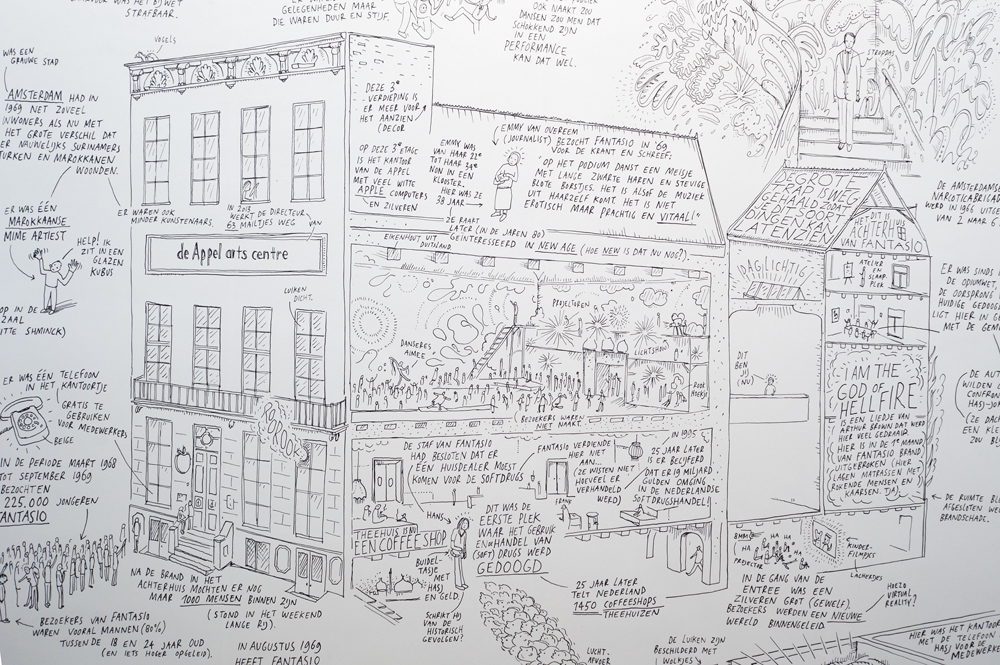 STRAFBAAR.
GELEGENHEDEN MAAR
DIE WAREN DUUR EN STIJF.
OOK NAAKT ZOU
DANSEN ZOU MEN DAT
SCHOKKEND ZIJN
IN EEN
PERFORMANCE
KAN DAT WEL.
STROPDAS
VOGELS
WAS EEN
GRAUWE STAD
AMSTERDAM HAD IN
1969 NET ZOVEEL
INWONERS ALS NU MET
HET GROTE VERSCHIL DAT
ER NAUWELIJKS SURINAMERS
TURKEN EN MAROKKANEN
WOONDEN.
ER WAREN OOK
MINDER KUNSTENAARS.
ER WAS ÉÉN
MAROKKAANSE
MIME ARTIEST
HELP! IK
ZIT IN EEN
GLAZEN
KUBUS
OP IN DE
ZAAL
ER WAS ÉÉN TELEFOON
IN HET KANTOORTJE
GRATIS TE
GEBRUIKEN
VOOR MEDEWERKERS
BEIGE
IN DE PERIODE MAART 1968
TOT SEPTEMBER 1969
BEZOCHTEN
225.000 JONGEREN
FANTASIO
BEZOEKERS VAN FANTASIO
WAREN VOORAL MANNEN (80%)
TUSSEN DE 18 EN 24 JAAR OUD
(EN IETS HOGER OPGELEID).
NA DE BRAND IN HET
ACHTERHUIS MOCHTEN ER NOG
MAAR 1000 MENSEN BINNEN ZIJN
(STOND IN HET WEEKEND
LANGE RIJ).
IN AUGUSTUS 1969
HEEFT FANTASIO
IN 2013
WERKT DE DIRECTEUR
63 MAILTJES WEG
VAN
de Appel arts centre
LUIKEN
DICHT.
DEZE 3e
VERDIEPING IS
ER MEER VOOR
HET AANZIEN
(DECOR
OP DEZE 3e ETAGE
IS HET KANTOOR
VAN DE APPEL
MET VEEL WITTE
APPLE COMPUTERS
EN ZILVEREN
EMMY WAS
VAN HAAR 22e
TOT HAAR 34e
NON IN EEN
KLOOSTER.
HIER WAS ZE
38 JAAR
EMMY VAN OVEREEM
(JOURNALIST) BEZOCHT FANTASIO IN '69
VOOR DE KRANT EN SCHREEF:
"OP HET PODIUM DANST EEN MEISJE
MET LANGE ZWARTE HAREN EN STEVIGE
BLOTE BORSTJES. HET IS ALSOF DE MUZIEK
UIT HAARZELF KOMT HET IS NIET
EROTISCH MAAR PRACHTIG EN VITAAL!"
ZE RAAKT
LATER (IN DE JAREN 80)
GEÏNTERESSEERD IN NEW AGE (HOE NEW IS DAT NU NOG?).
EIKENHOUT UIT
DUITSLAND
PROJECTOREN
DANSERES
AIMEE
LICHTSHOW
ROOK
HOEKJE
BEZOEKERS WAREN
NIET NAAKT.
DE STAF VAN FANTASIO
HAD BESLOTEN DAT ER
EEN HUISDEALER MOEST
KOMEN VOOR DE SOFTDRUGS
FANTASIO VERDIENDE
HIER NIET
AAN...
(ZE WISTEN NIET
HOEVEEL ER
VERHANDELD
WERD)
IN 1995
25 JAAR LATER
IS ER BECIJFERD
DAT ER 19 MILJARD
GULDEN OMGING
IN DE NEDERLANDSE
SOFTDRUGSHANDEL!
FRANK
HANS
THEEHUIS IS NU
EEN COFFEESHOP
BUIDEL-
TASJE
MET
HASJ
EN GELD.
SCHRIKT HIJ
VAN DE
HISTORISCH
GEVOLGEN?
DIT WAS DE
EERSTE PLEK
WAAR HET GEBRUIK
EN HANDEL VAN
(SOFT) DRUGS WERD
GEDOOGD
25 JAAR LATER
TELT NEDERLAND
1450 COFFEESHOPS
THEEHUIZEN
LUCHT-
AFVOER
DE LUIKEN ZIJN
BESCHILDERD MET
WOLKJES
DE GROTE
TRAP IS WEG
GEHAALD ZODAT
ER GROOT SOORT
DINGEN KAN
LATEN ZIEN
DAGLICHTIG
DIT
BEN
IK
(NU)
DIT IS
ACHTERHUIS
VAN FANTASIO
ATELIER
EN
SLAAP
PLEK
I AM THE
GOD OF
HELLFIRE
IS EEN LIEDJE VAN
ARTHUR BROWN DAT WERD
HIER VEEL GEDRAAID
HIER IS IN DE 1e MAAND
VAN FANTASIO BRAND
UITGEBROKEN (HIER
LAGEN MATRASSEN MET
ROKENDE MENSEN EN
KAARSEN. TJA).
HA HA HA
PROJECTOR
KINDER-
FILMPJES
LACHERTJES
IN DE GANG VAN DE
ENTREE WAS EEN
ZILVEREN GROT (GEWELF).
BEZOEKERS WERDEN EEN NIEUWE
WERELD BINNENGELEID
HOEZO
VIRTUAL
REALITY?
DE AMSTERDAMS
NARCOTICABRIGAD
WERD IN 1966 UITGE
VAN 2 NAAR 6
ER WAS SINDS
DE OPIUMWET.
DE OORSPRONG
HUIDIGE GEDOOG
LIGT HIER IN G
MET DE GEM
DE AUT
WILDEN
CONFRON
HASJ-JON
(ZE DACH
EEN KLE
ZOU BL
DE RUIMTE BL
AFGESLOTEN WE
BRANDSCHADE.
HIER WAS HET KANTOO
MET DE TELEFOON
HASJ VOOR DE
MEDEWERKE